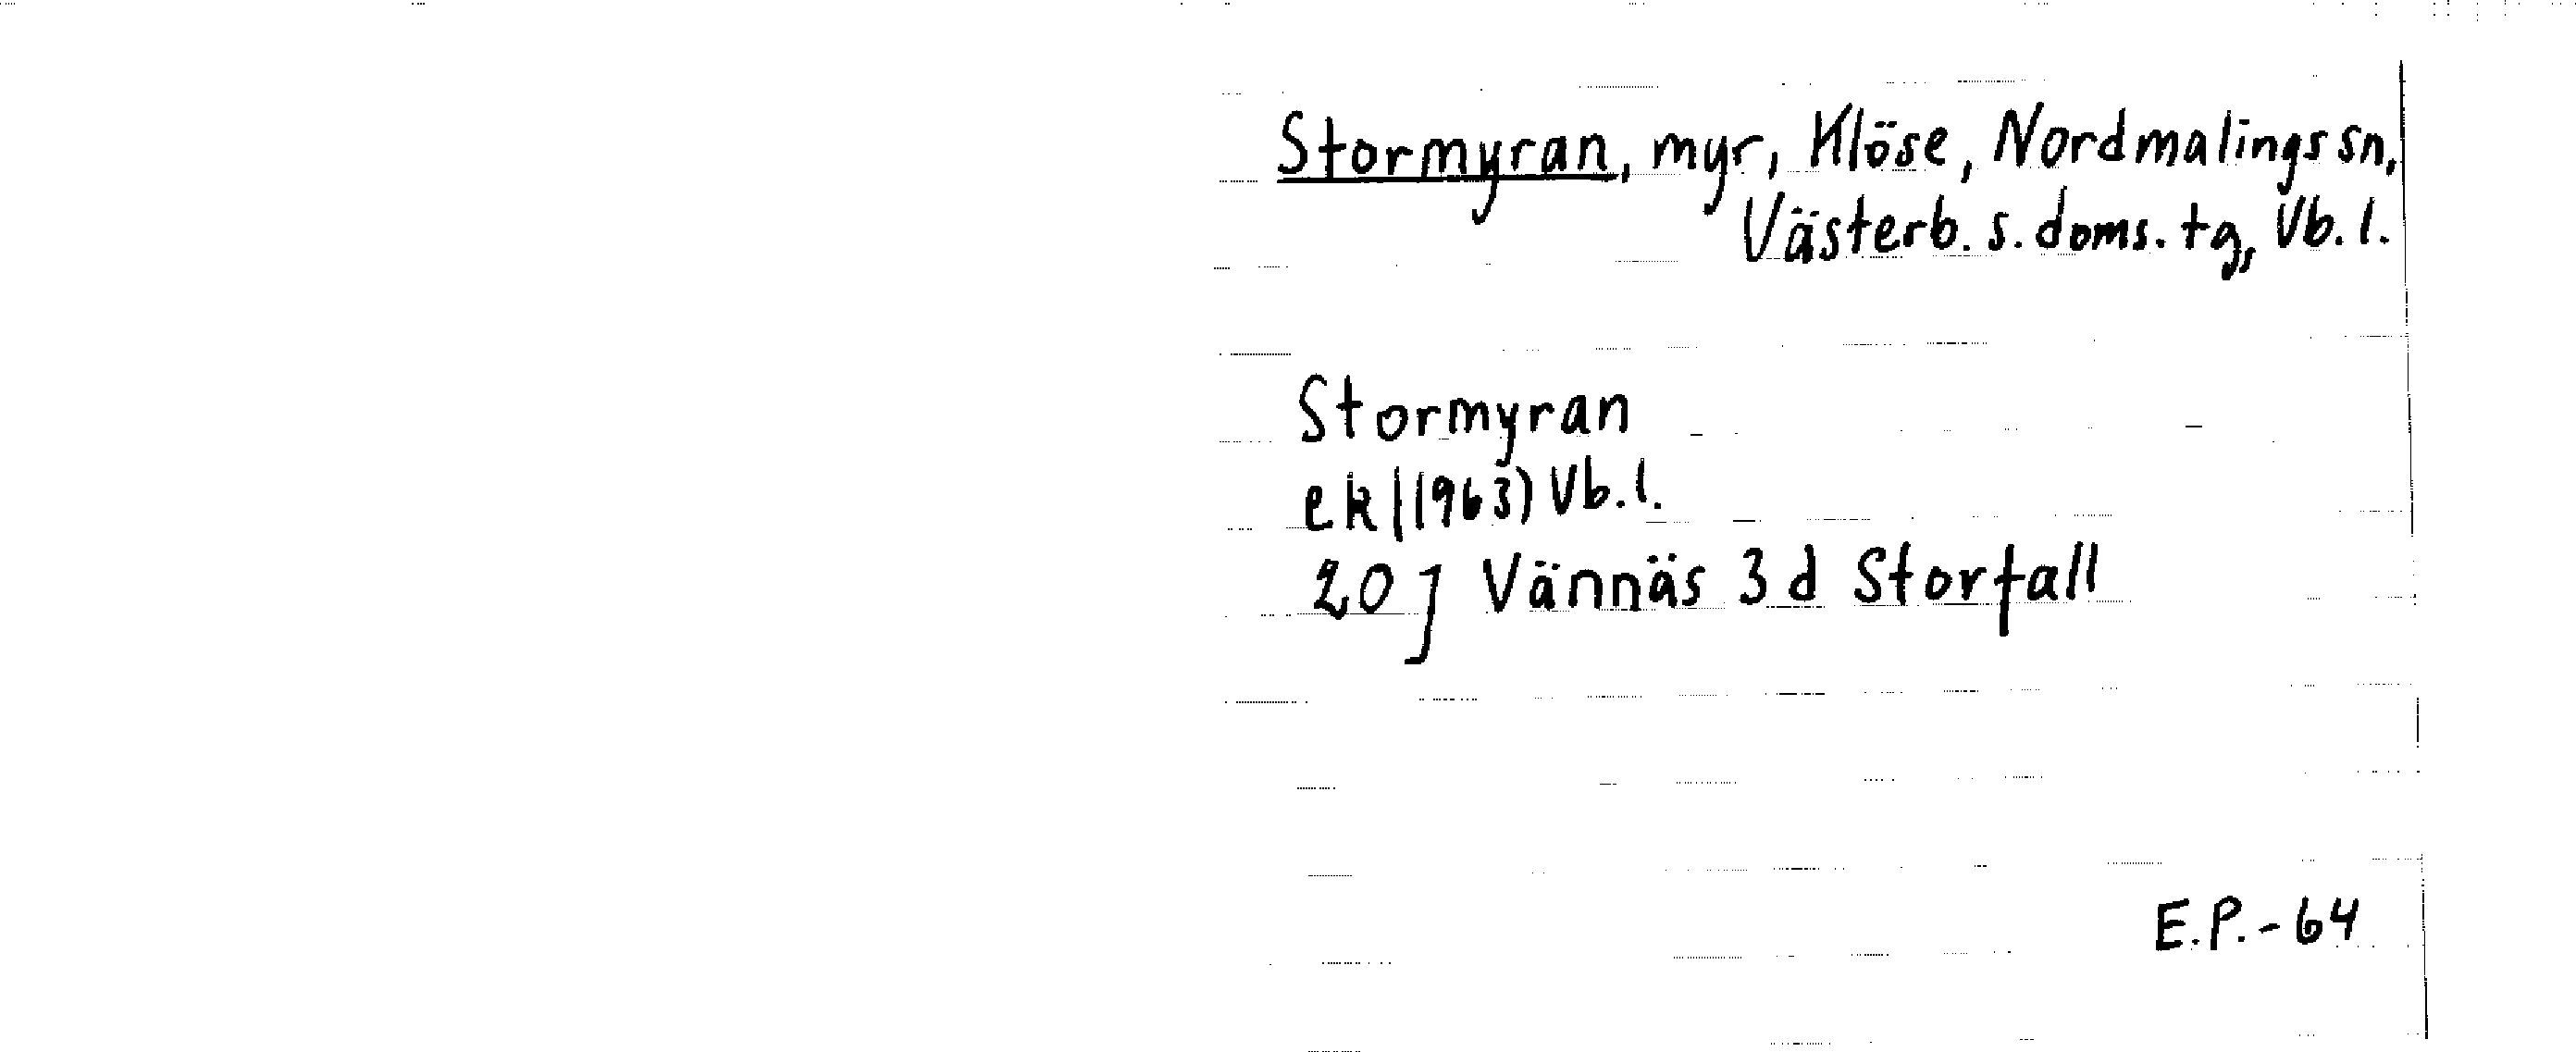 Stormyran, myr, Klöse, Nordmalings sn,
Västerb. s. doms. tg, Vb. l.
Stormyran
ek (1963) Vb. l.
20 J Vännäs 3 d Storfall
E.P.-64